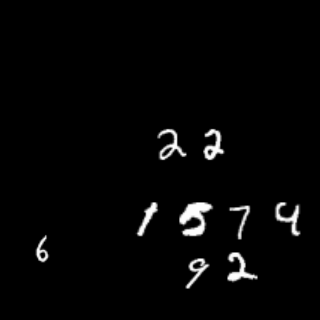 2 2
1 5 7 4
6
9 2